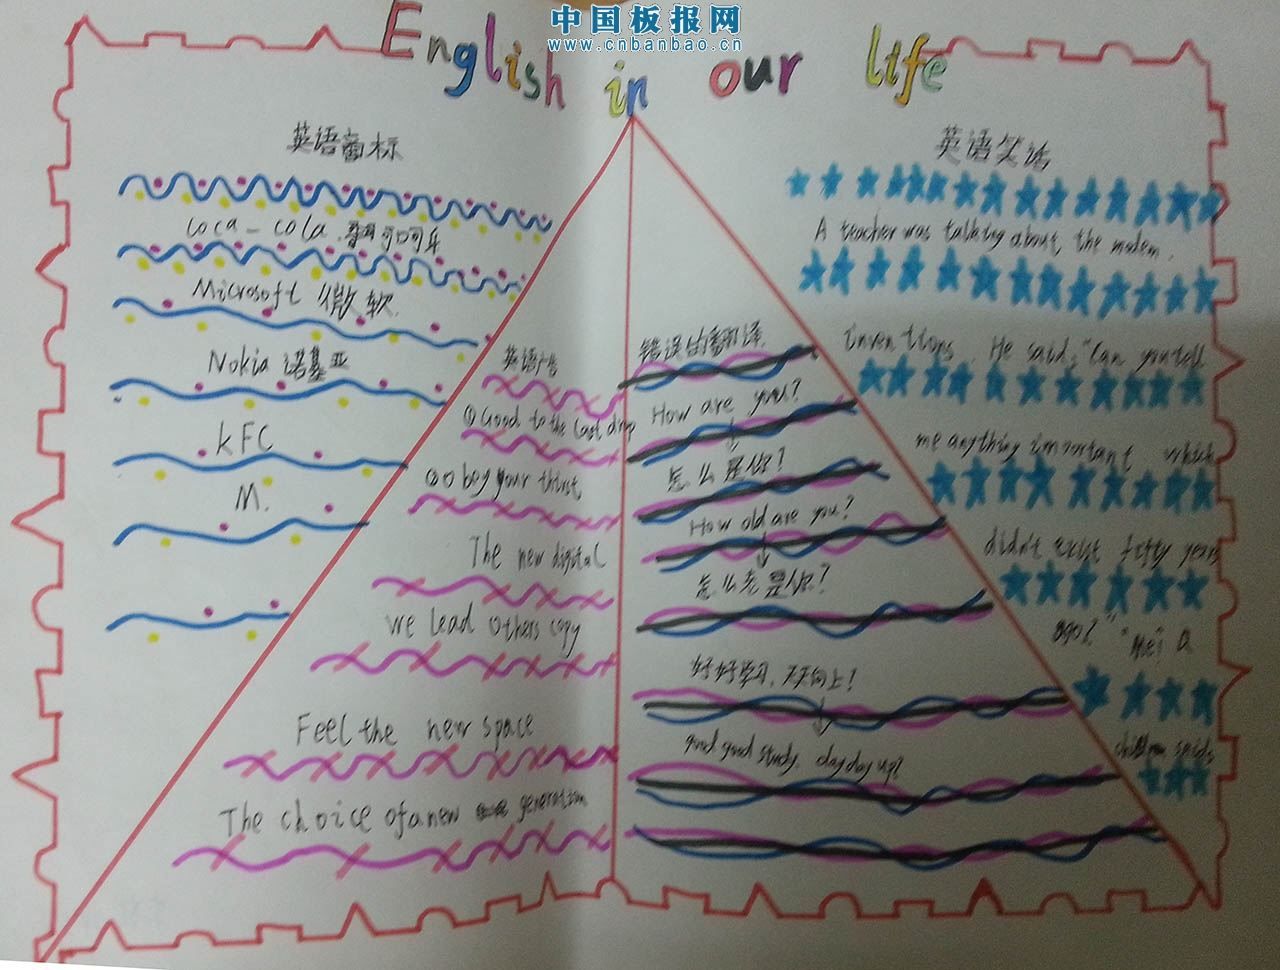 中国板报网
www.cnbanbao.cn
English in our life
英语商标
coca-cola 可口可乐
Microsoft 微软.
Nokia 诺基亚
KFC
M.
英语广告
①Good to the last drop
②Obey your thirst
The new digital
We lead Others copy
Feel the new space
The choice of a new generation
错误的翻译.
How are you?
↓
怎么是你?
How old are you?
↓
怎么老是你?
好好学习,天天向上!
↓
good good study, day day up?
英语笑话
A teacher was talking about the modern.
inventions. He said,"Can you tell
me anything important which
didn't exist fifty years
ago?" "Me! a
children saids